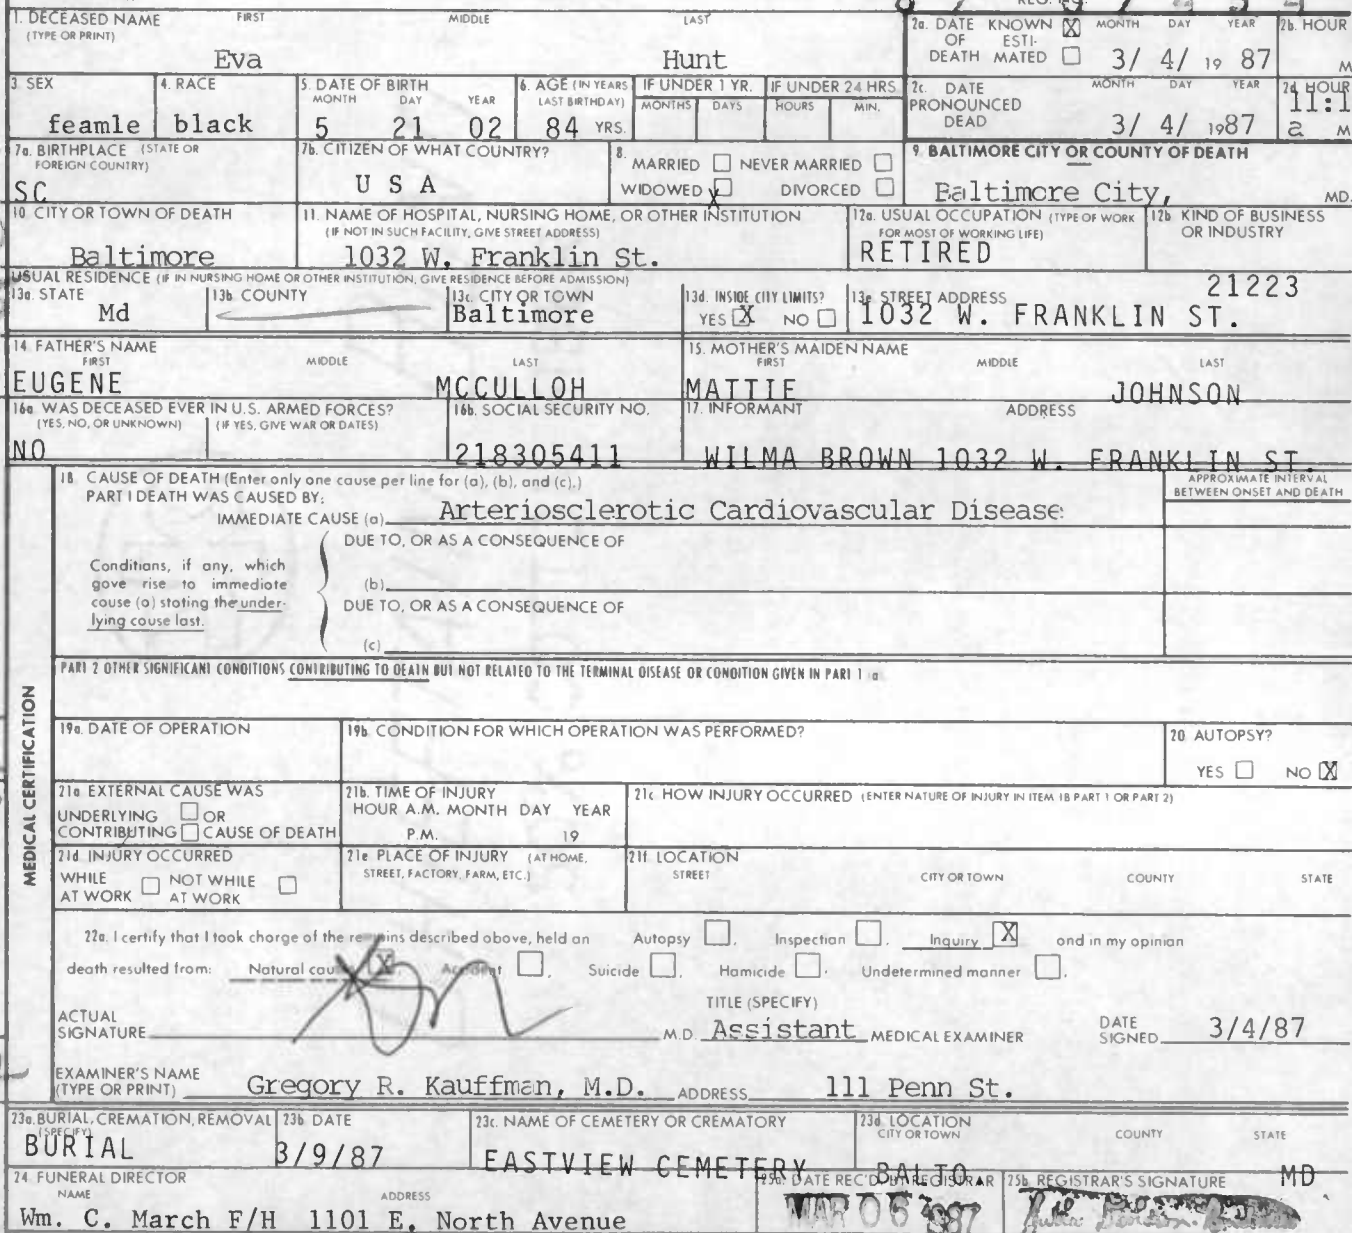 1. DECEASED NAME FIRST MIDDLE LAST
(TYPE OR PRINT)
Eva Hunt
2a. DATE OF DEATH KNOWN [X] ESTIMATED [ ] MONTH DAY YEAR
3/ 4/ 19 87
2b. HOUR
M
3 SEX
feamle
4. RACE
black
5. DATE OF BIRTH
MONTH DAY YEAR
5 21 02
6. AGE (IN YEARS LAST BIRTHDAY)
84 YRS.
IF UNDER 1 YR.
MONTHS DAYS
IF UNDER 24 HRS
HOURS MIN.
2c. DATE PRONOUNCED DEAD
MONTH DAY YEAR
3/ 4/ 1987
2d HOUR
11:1
a M
7a. BIRTHPLACE (STATE OR FOREIGN COUNTRY)
SC
7b. CITIZEN OF WHAT COUNTRY?
U S A
8. MARRIED [ ] NEVER MARRIED [ ]
WIDOWED [X] DIVORCED [ ]
9. BALTIMORE CITY OR COUNTY OF DEATH
Baltimore City, MD.
10. CITY OR TOWN OF DEATH
Baltimore
11. NAME OF HOSPITAL, NURSING HOME, OR OTHER INSTITUTION
(IF NOT IN SUCH FACILITY, GIVE STREET ADDRESS)
1032 W. Franklin St.
12a. USUAL OCCUPATION (TYPE OF WORK FOR MOST OF WORKING LIFE)
RETIRED
12b KIND OF BUSINESS OR INDUSTRY
USUAL RESIDENCE (IF IN NURSING HOME OR OTHER INSTITUTION, GIVE RESIDENCE BEFORE ADMISSION)
13a. STATE
Md
13b COUNTY
13c. CITY OR TOWN
Baltimore
13d. INSIDE CITY LIMITS?
YES [X] NO [ ]
13e STREET ADDRESS 21223
1032 W. FRANKLIN ST.
14. FATHER'S NAME
FIRST MIDDLE LAST
EUGENE MCCULLOH
15. MOTHER'S MAIDEN NAME
FIRST MIDDLE LAST
MATTIE JOHNSON
16a WAS DECEASED EVER IN U.S. ARMED FORCES?
(YES, NO, OR UNKNOWN) (IF YES, GIVE WAR OR DATES)
NO
16b. SOCIAL SECURITY NO.
218305411
17. INFORMANT ADDRESS
WILMA BROWN 1032 W. FRANKLIN ST.
MEDICAL CERTIFICATION
18. CAUSE OF DEATH (Enter only one cause per line for (a), (b), and (c).)
PART I DEATH WAS CAUSED BY:
APPROXIMATE INTERVAL BETWEEN ONSET AND DEATH
IMMEDIATE CAUSE (a) Arteriosclerotic Cardiovascular Disease
DUE TO, OR AS A CONSEQUENCE OF
Conditions, if any, which gave rise to immediate cause (a) stating the underlying cause last.
(b)
DUE TO, OR AS A CONSEQUENCE OF
(c)
PART 2 OTHER SIGNIFICANT CONDITIONS CONTRIBUTING TO DEATH BUT NOT RELATED TO THE TERMINAL DISEASE OR CONDITION GIVEN IN PART 1 a
19a. DATE OF OPERATION
19b. CONDITION FOR WHICH OPERATION WAS PERFORMED?
20. AUTOPSY?
YES [ ] NO [X]
21a EXTERNAL CAUSE WAS
UNDERLYING [ ] OR
CONTRIBUTING [ ] CAUSE OF DEATH
21b. TIME OF INJURY
HOUR A.M. MONTH DAY YEAR
P.M. 19
21c. HOW INJURY OCCURRED (ENTER NATURE OF INJURY IN ITEM 18 PART 1 OR PART 2)
21d INJURY OCCURRED
WHILE AT WORK [ ] NOT WHILE AT WORK [ ]
21e PLACE OF INJURY (AT HOME, STREET, FACTORY, FARM, ETC.)
21f LOCATION
STREET CITY OR TOWN COUNTY STATE
22a. I certify that I took charge of the remains described above, held an Autopsy [ ], Inspection [ ], Inquiry [X] and in my opinion
death resulted from: Natural cau [X] Accident [ ], Suicide [ ], Homicide [ ], Undetermined manner [ ].
TITLE (SPECIFY)
ACTUAL SIGNATURE M.D. Assistant MEDICAL EXAMINER DATE SIGNED 3/4/87
EXAMINER'S NAME (TYPE OR PRINT) Gregory R. Kauffman, M.D. ADDRESS 111 Penn St.
23a. BURIAL, CREMATION, REMOVAL (SPECIFY)
BURIAL
23b DATE
3/9/87
23c. NAME OF CEMETERY OR CREMATORY
EASTVIEW CEMETERY
23d LOCATION
CITY OR TOWN COUNTY STATE
BALTO MD
24. FUNERAL DIRECTOR
NAME ADDRESS
Wm. C. March F/H 1101 E. North Avenue
25a. DATE REC'D BY REGISTRAR
MAR 06 1987
25b. REGISTRAR'S SIGNATURE